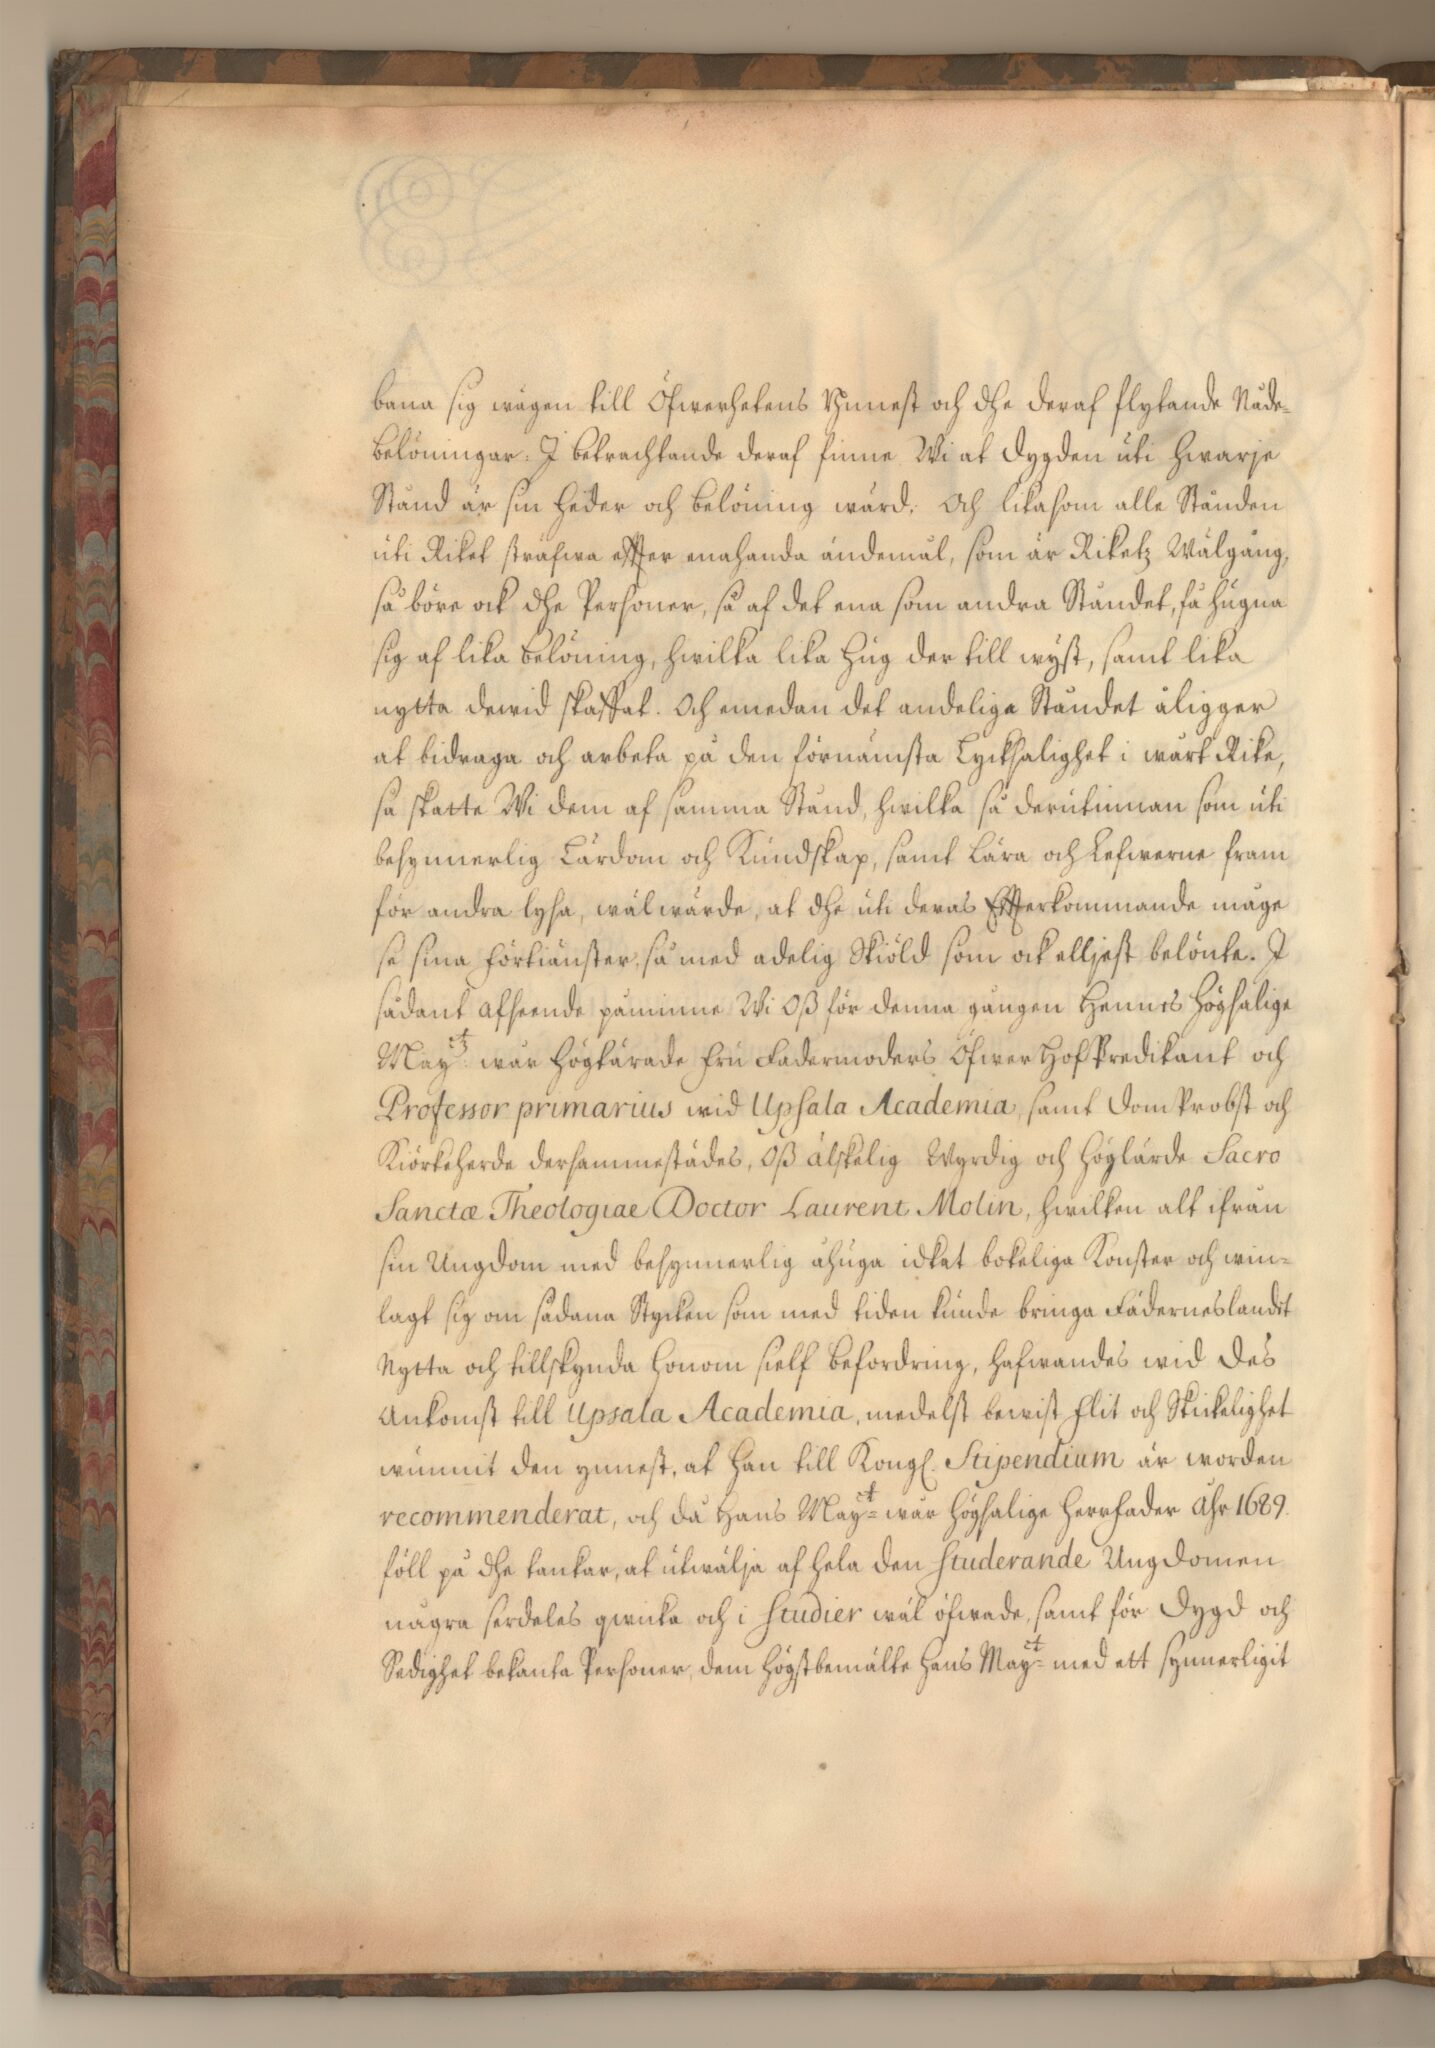 bana sig wägen till Öfwerhetens Ynnest och dhe deraf flytande Nåde-
belöningar. I betrachtande deraf finne Wi at dygden uti hwarje
Stånd är sin heder och belöning wärd. Och likasom alle Stånden
uti Riket sträfwa effter enahanda ändemål, som är Riketz Wälgång,
så böre ock dhe Personer, så af det ena som andra Ståndet, få hugna
sig af lika belöning, hwilka lika hug der till wyst, samt lika
nytta dewid skaffat. Och emedan det andelige Ståndet åligger
at bidraga och arbeta på den förnämsta Lycksalighet i wårt Rike,
så skatte Wi dem af samma Stånd, hwilka så derutinnan som uti
besynnerlig Lärdom och Kundskap, samt Lära och Lefwerne fram
för andra lysa, wälwärde, at dhe uti deras Effterkommande måge
se sina förtiänster, så med adelig Skiöld som ock elljest belönte. I
sådant afseende påminne Wi Oß för denna gången Hennes Högsalige
Maytz wår Högkärade Fru Fadermoders Öfwer Hof Predikant och
Professor primarius wid Upsala Academia, samt Dom Probst och
Kiörkeherde dersammestädes, Oß älskelig Wyrdig och Höglärde Sacro
Sanctæ Theologiae Doctor Laurent Molin, hwilken alt ifrån
sin Ungdom med besynnerlig åhuga idkat bokeliga Konster och win-
lagt sig om sådana Stycken som med tiden kunde bringa Fäderneslandet
Nytta och tillskynda honom sielf befordring, hafwandes wid des
Ankomst till Upsala Academia, medelst bewist Flit och Skickelighet
wunnit den ynnest, at han till Kongl. Stipendium är worden
recommenderat, och då Hans Mayt= wår Högsalige Herr Fader åhr 1689.
föll på dhe tankar, at utwälja af hela den studerande Ungdomen
några serdeles qwicka och i studier wäl öfwade, samt för Dygd och
Sedighet bekanta Personer, dem Högstbemälte Hans Mayt= med ett synnerligit